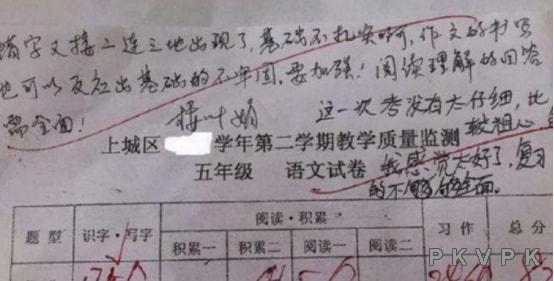 错字又接二连三地出现了,基础不扎实呵,作文的书写
也可以反应出基础的不牢固,要加强!阅读理解的回答
需全面!
楼叶娟
这一次考没有太仔细,比
较粗心
上城区 学年第二学期教学质量监测
五年级 语文试卷
我感觉太好了,复习
的不够全面。
题 型 识字·写字 阅读·积累 习 作 总 分
积累一 积累二 阅读一 阅读二
PKVPK